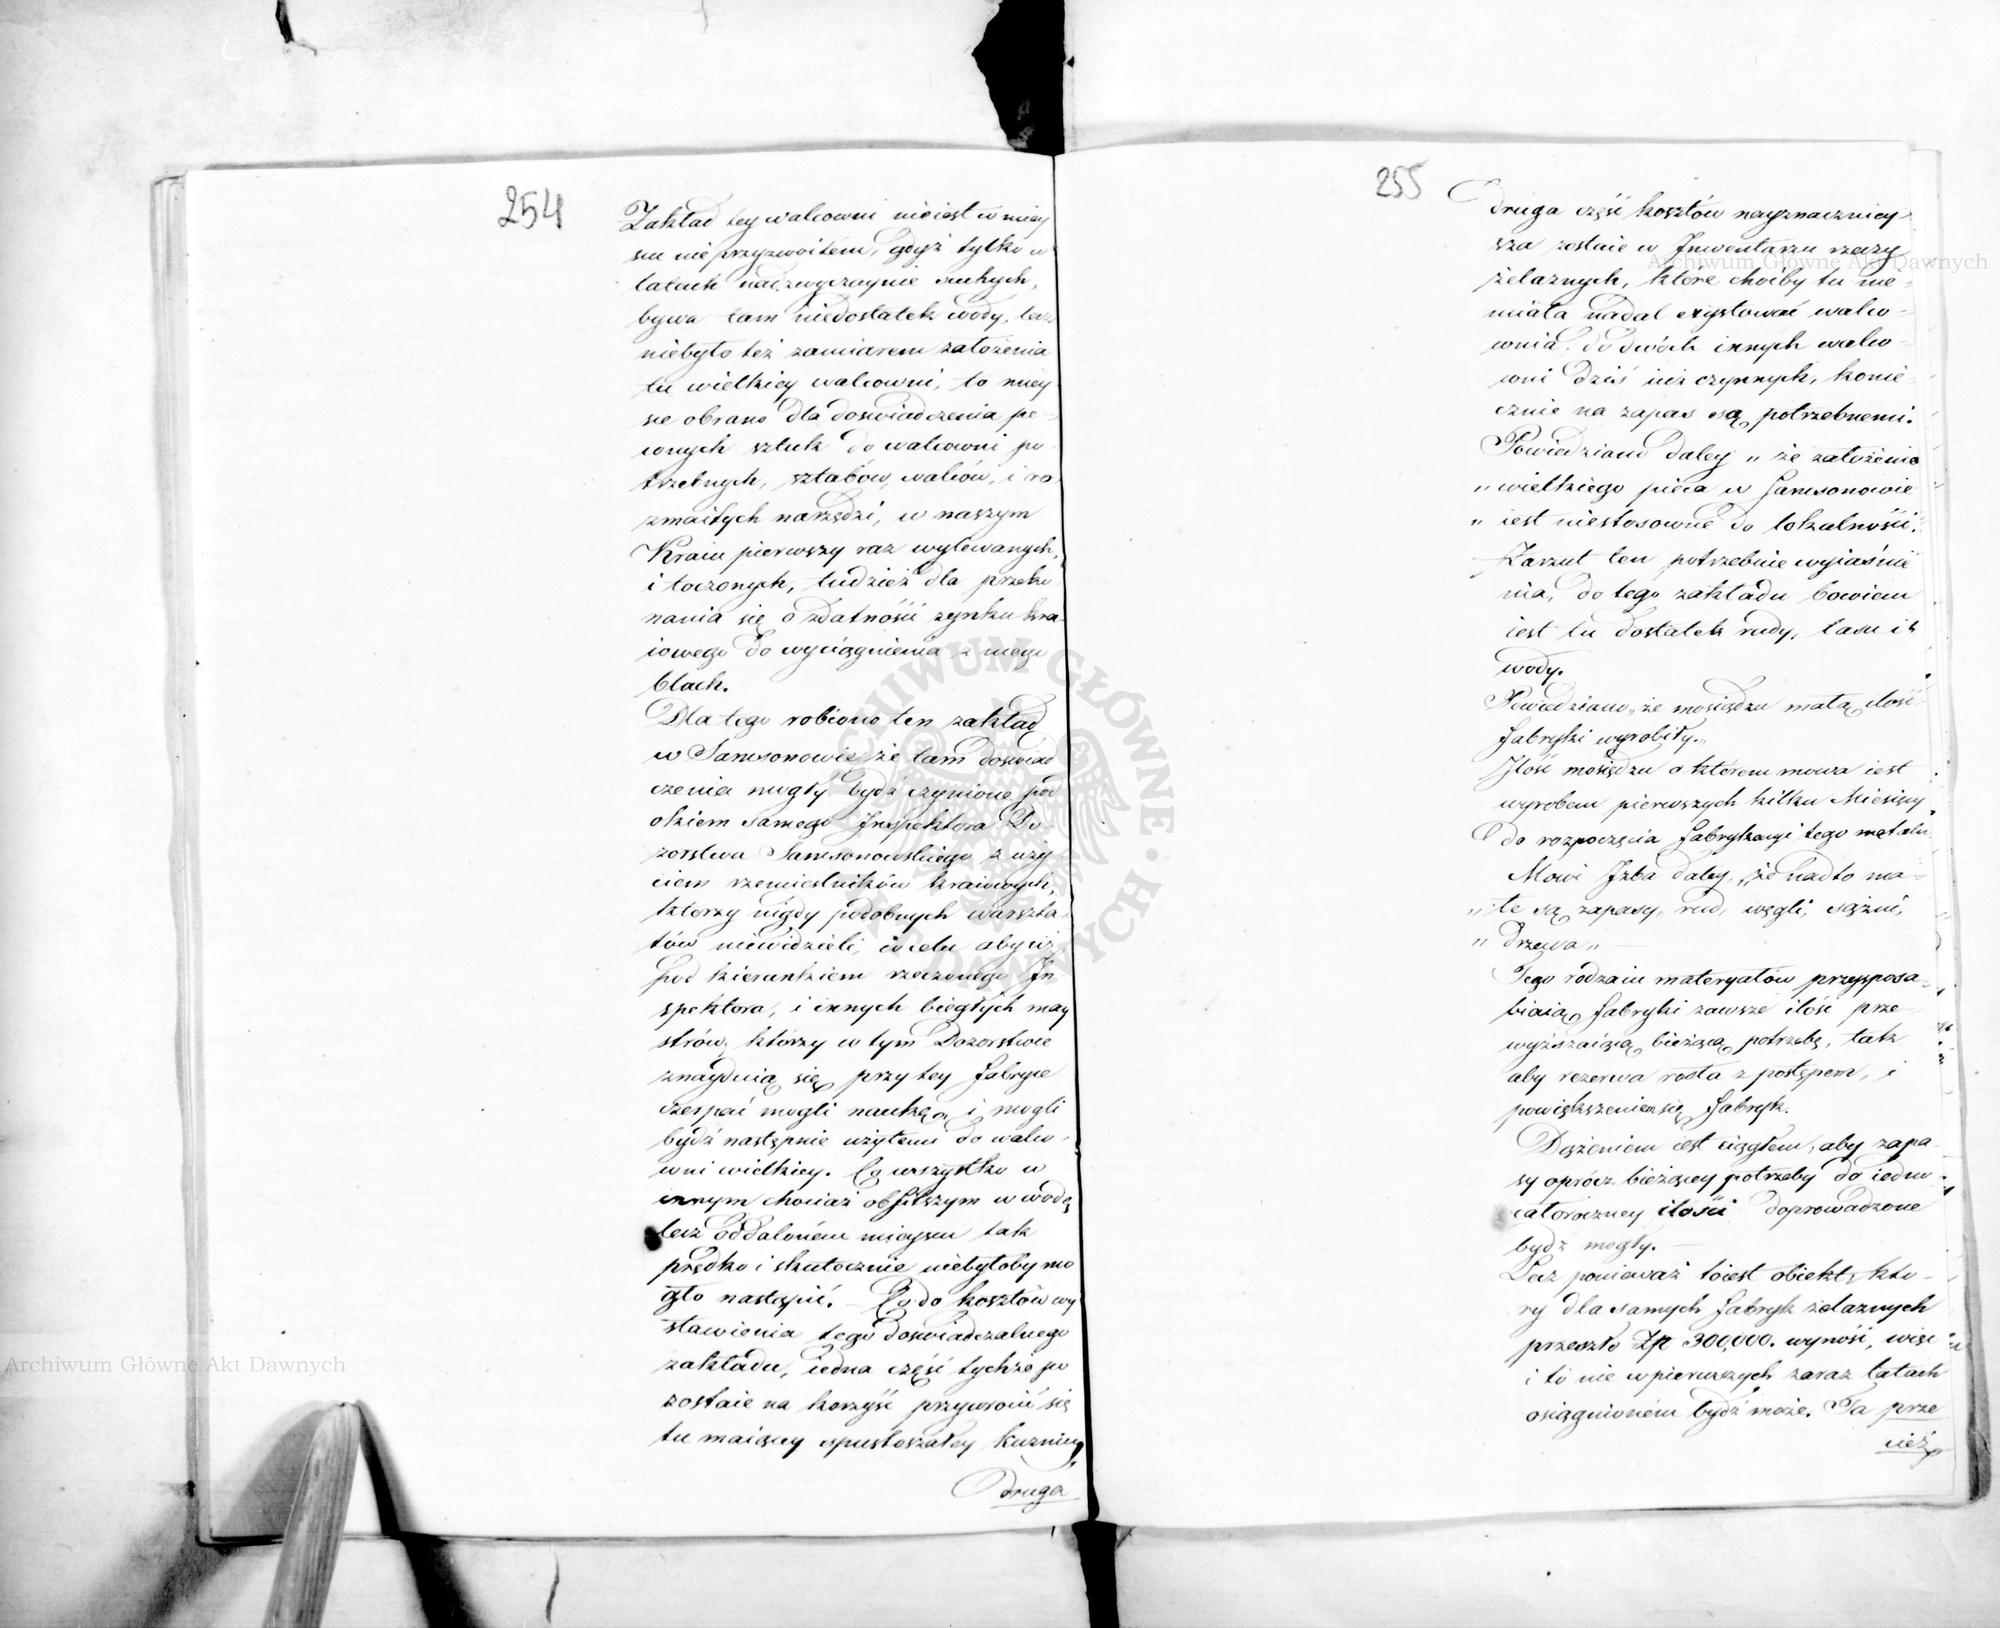 254
Zakład tey walcowni nieiest w miey
scu nieprzyzwoitem, gdyż tylko w
latach nadzwyczaynie suchych,
bywa tam niedostatek wody, lecz
niebyło też zamiarem założenia
tu wielkiey walcowni, to miey
sce obrano dla doświadczenia pe-
wnych sztuk do walcowni po
trzebnych, sztabów, walców, i ro
zmaitych narzędzi, w naszym
Kraiu pierwszy raz wylewanych,
i toczonych, tudzież dla przeko
nania się o zdatności zynku kra-
iowego do wyciągnienia z niego
blach.
Dla tego robiono ten zakład
w Samsonowie że tam doświad
czenia mogły bydź czynione pod
okiem samego Inspektora Do-
zorstwa Samsonowskiego z uży
ciem rzemieślników kraiowych,
którzy nigdy podobnych warszta-
tów niewidzieli, w celu aby iż
pod kierunkiem rzeczonego In
spektora, i innych biegłych may
strów, którzy w tym Dozorstwie
znayduią się, przy tey fabryce
czerpać mogli naukę, i mogli
bydź następnie użytemi do walco-
wni wielkiey. Co wszystko w
innym chociaż obfitszym w wodę
lecz oddalonem mieyscu tak
prędko i skutecznie niebyłoby mo
gło nastąpić. — Co do kosztów wy
stawienia tego doświadczalnego
zakładu, iedna część tychże po
zostaie na korzyść przywrócić się
tu maiącey spustoszałey kuźnicy,
Druga
255
Druga część kosztów nayznaczniey-
sza zostaie w Inwentarzu rzeczy
żelaznych, które choćby tu nie-
miała nadal exystować walco-
wnia, do dwóch innych walco-
wni dziś iuż czynnych, konie-
cznie na zapas są potrzebnemi.
Powiedziano daley „ że założenie
„ wielkiego pieca w Samsonowie
„ iest niestosowne do lokalności.„
Zarzut ten potrzebuie wyiaśnie
nia, do tego zakładu bowiem
iest tu dostatek rudy, lasu i
wody.
Powiedziano „ że mosiądzu małą ilość
fabryki wyrobiły.„
Ilość mosiądzu o którem mowa iest
wyrobem pierwszych kilku Miesięcy
do rozpoczęcia fabrykacyi tego metalu.
Mówi Izba daley, „że nadto ma-
„ łe są zapasy, rud, węgli, sążni,
„ drzewa„
Tego rodzaiu materyałów przysposa-
biaią fabryki zawsze ilość prze-
wyższaiącą bieżącą potrzebę, tak
aby rezerwa rosła z postępem, i
powiększeniem się fabryk.
Dążeniem iest ciągłem, aby zapa-
sy oprócz bieżącey potrzeby do iedno
całoroczney ilości doprowadzone
bydź mogły. —
Lecz ponieważ toiest obiekt, któ-
ry dla samych fabryk żelaznych
przeszło Zp 300,000. wynosi, więc
i to nie w pierwszych zaraz latach
osiągnionem bydź może. Ta prze
cież
Archiwum Główne Akt Dawnych
Archiwum Główne Akt Dawnych
ARCHIWUM GŁÓWNE AKT DAWNYCH